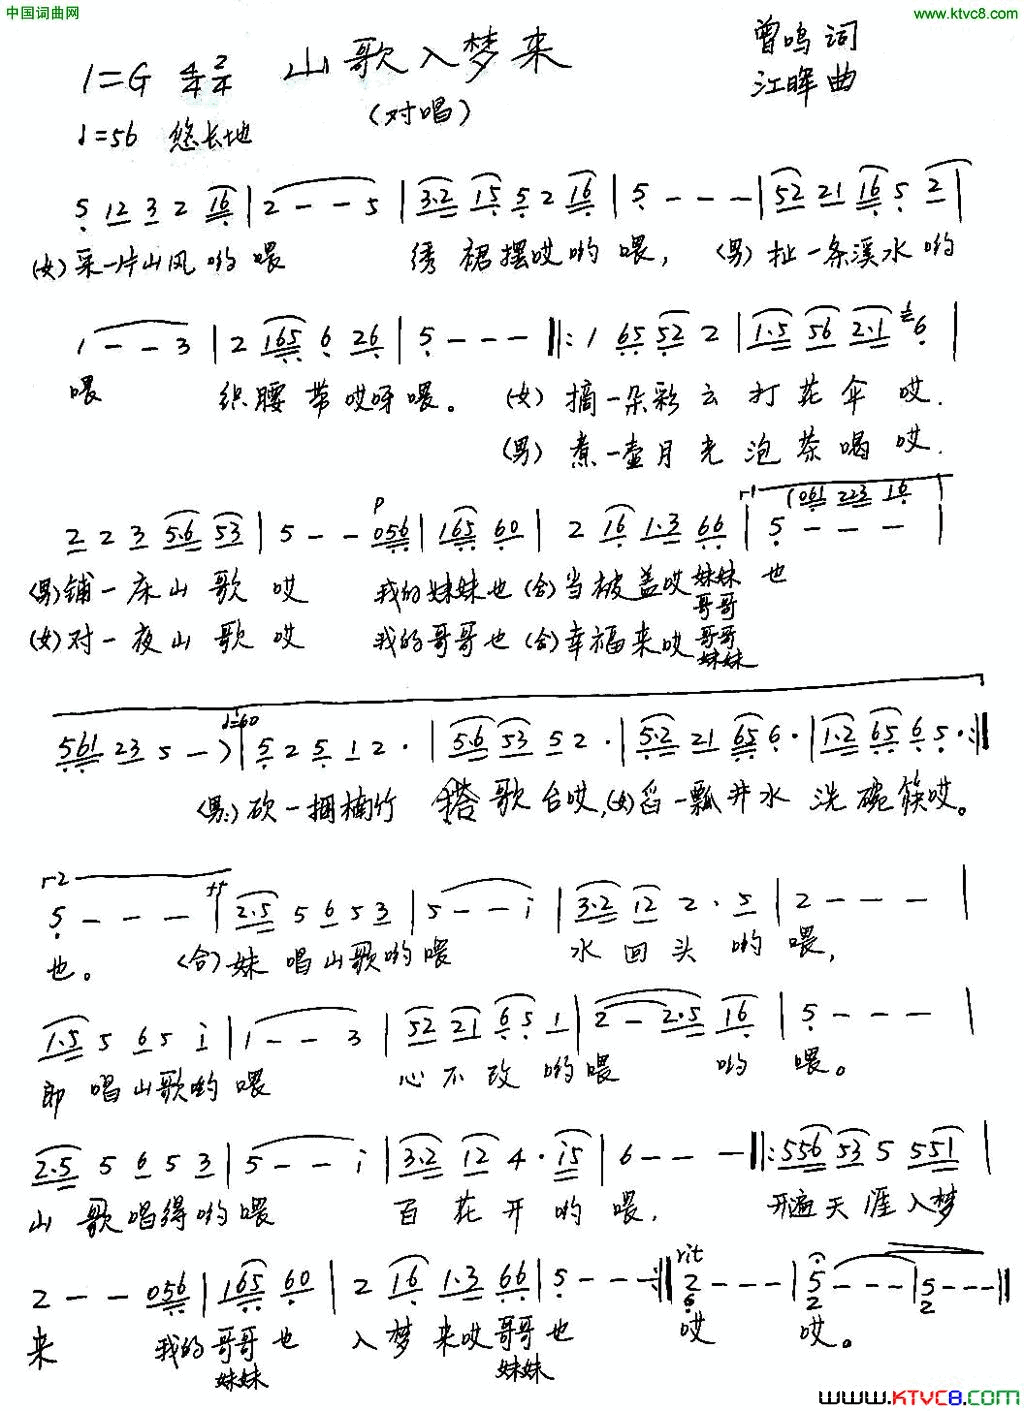 中国词曲网
www.ktvc8.com
山歌入梦来
曾鸣 词
1=G 4/4 2/4
(对唱)
江晖 曲
♩=56 悠长地
5 12 3 2 16 | 2 - - 5 | 3·2 15 5 2 16 | 5 - - - | 52 21 16 5 2 |
(女)采一片山风哟喂 绣裙摆哎哟喂, (男)扯一条溪水哟
1 - - 3 | 2 165 6 26 | 5 - - - ‖: 1 65 52 2 | 1·5 56 2·1 6 |
喂 织腰带哎呀喂。 (女)摘一朵彩云打花伞哎.
(男)煮一壶月光泡茶喝哎.
2 2 3 5·6 53 | 5 - - 056 | 165 60 | 2 16 1·3 66 | 5 - - - |
p
r1 (061 223 16
(男)铺一床山歌哎 我的妹妹也(合)当被盖哎妹妹也
哥哥
(女)对一夜山歌哎 我的哥哥也(合)幸福来哎哥哥
妹妹
561 23 5 - ) | 5 2 5 1 2 · | 5·6 53 5 2 · | 5·2 21 65 6 · | 1·2 65 6 5 · :‖
♩=60
(男)砍一捆楠竹 搭歌台哎,(女)舀一瓢井水洗碗筷哎。
r2
5 - - - | 2·5 5 6 5 3 | 5 - - i | 3·2 12 2 · 5 | 2 - - - |
也。 (合)妹唱山歌哟喂 水回头哟喂,
1·5 5 6 5 i | 1 - - 3 | 52 21 6 5 1 | 2 - 2·5 16 | 5 - - - |
郎唱山歌哟喂 心不改哟喂 哟喂。
2·5 5 6 5 3 | 5 - - i | 3·2 12 4 · i5 | 6 - - - ‖: 556 53 5 551 |
山歌唱得哟喂 百花开哟喂, 开遍天涯入梦
2 - - 056 | 165 60 | 2 16 1·3 66 | 5 - - - :‖ 2 - - - | 5 - - - | 5 - - - ‖
rit
6 2 2
来 我的哥哥也 入梦来哎哥哥也 哎 哎。
妹妹 妹妹
www.KTVC8.com